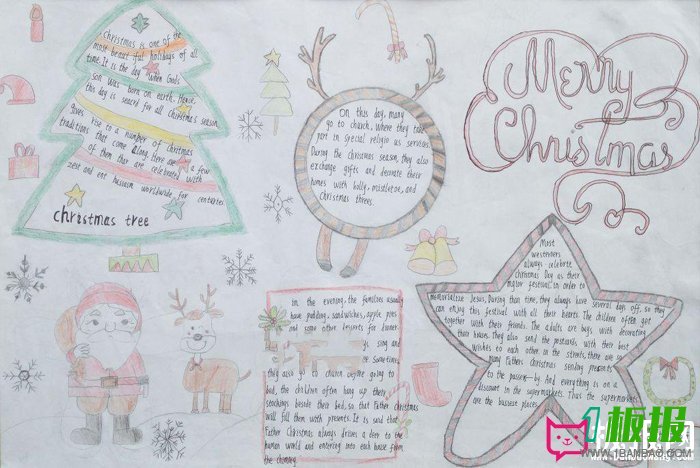 Christmas is one of the
most beaut ful holidays of all
time. It is the day when Gods
son was born on earth. Hense,
this day is seacrd for all Christmas season
gives rise to a number of Christmas
traditions that come along, there are a few
of them that are celebrated with
zest and ent husiasm worldwide for centeries
christmas tree
On this day, many
go to church, where they take
part in special religio us services.
During the Christmas season, they also
exchange gifts and decorate their
homes with holly, mistletoe, and
Christmas threes.
Merry
Christmas
In the evening, the families usually
have pudding, sandwiches, apple pies
and some other desirts for dinner.
sing and
Sometimes
they also go to church before going to
bed, the children often hang up there
stockings beside their bed, so that Father Christmas
will fill them with presents. It is said that
Father Christmas always drives a deer to the
human world and entering into each house from
the chimney.
Most
westerners
always celebrate
Christmas Day as their
major festival in order to
memorialize Jesus. During than time, they always have several days off, so they
can enjoy this festival with all their hearts. The children often got
together with their friends. The adults are busy with decorating
their houses. They also send the postcards with their best
wishes to each other in the streets, there are so
many Fathers Christmas sending presents
to the passer-by. And everything is on a
discount in the supermarkets. Thus the supermarkets
are the busiest places.
1板报
WWW.1BANBAO.COM